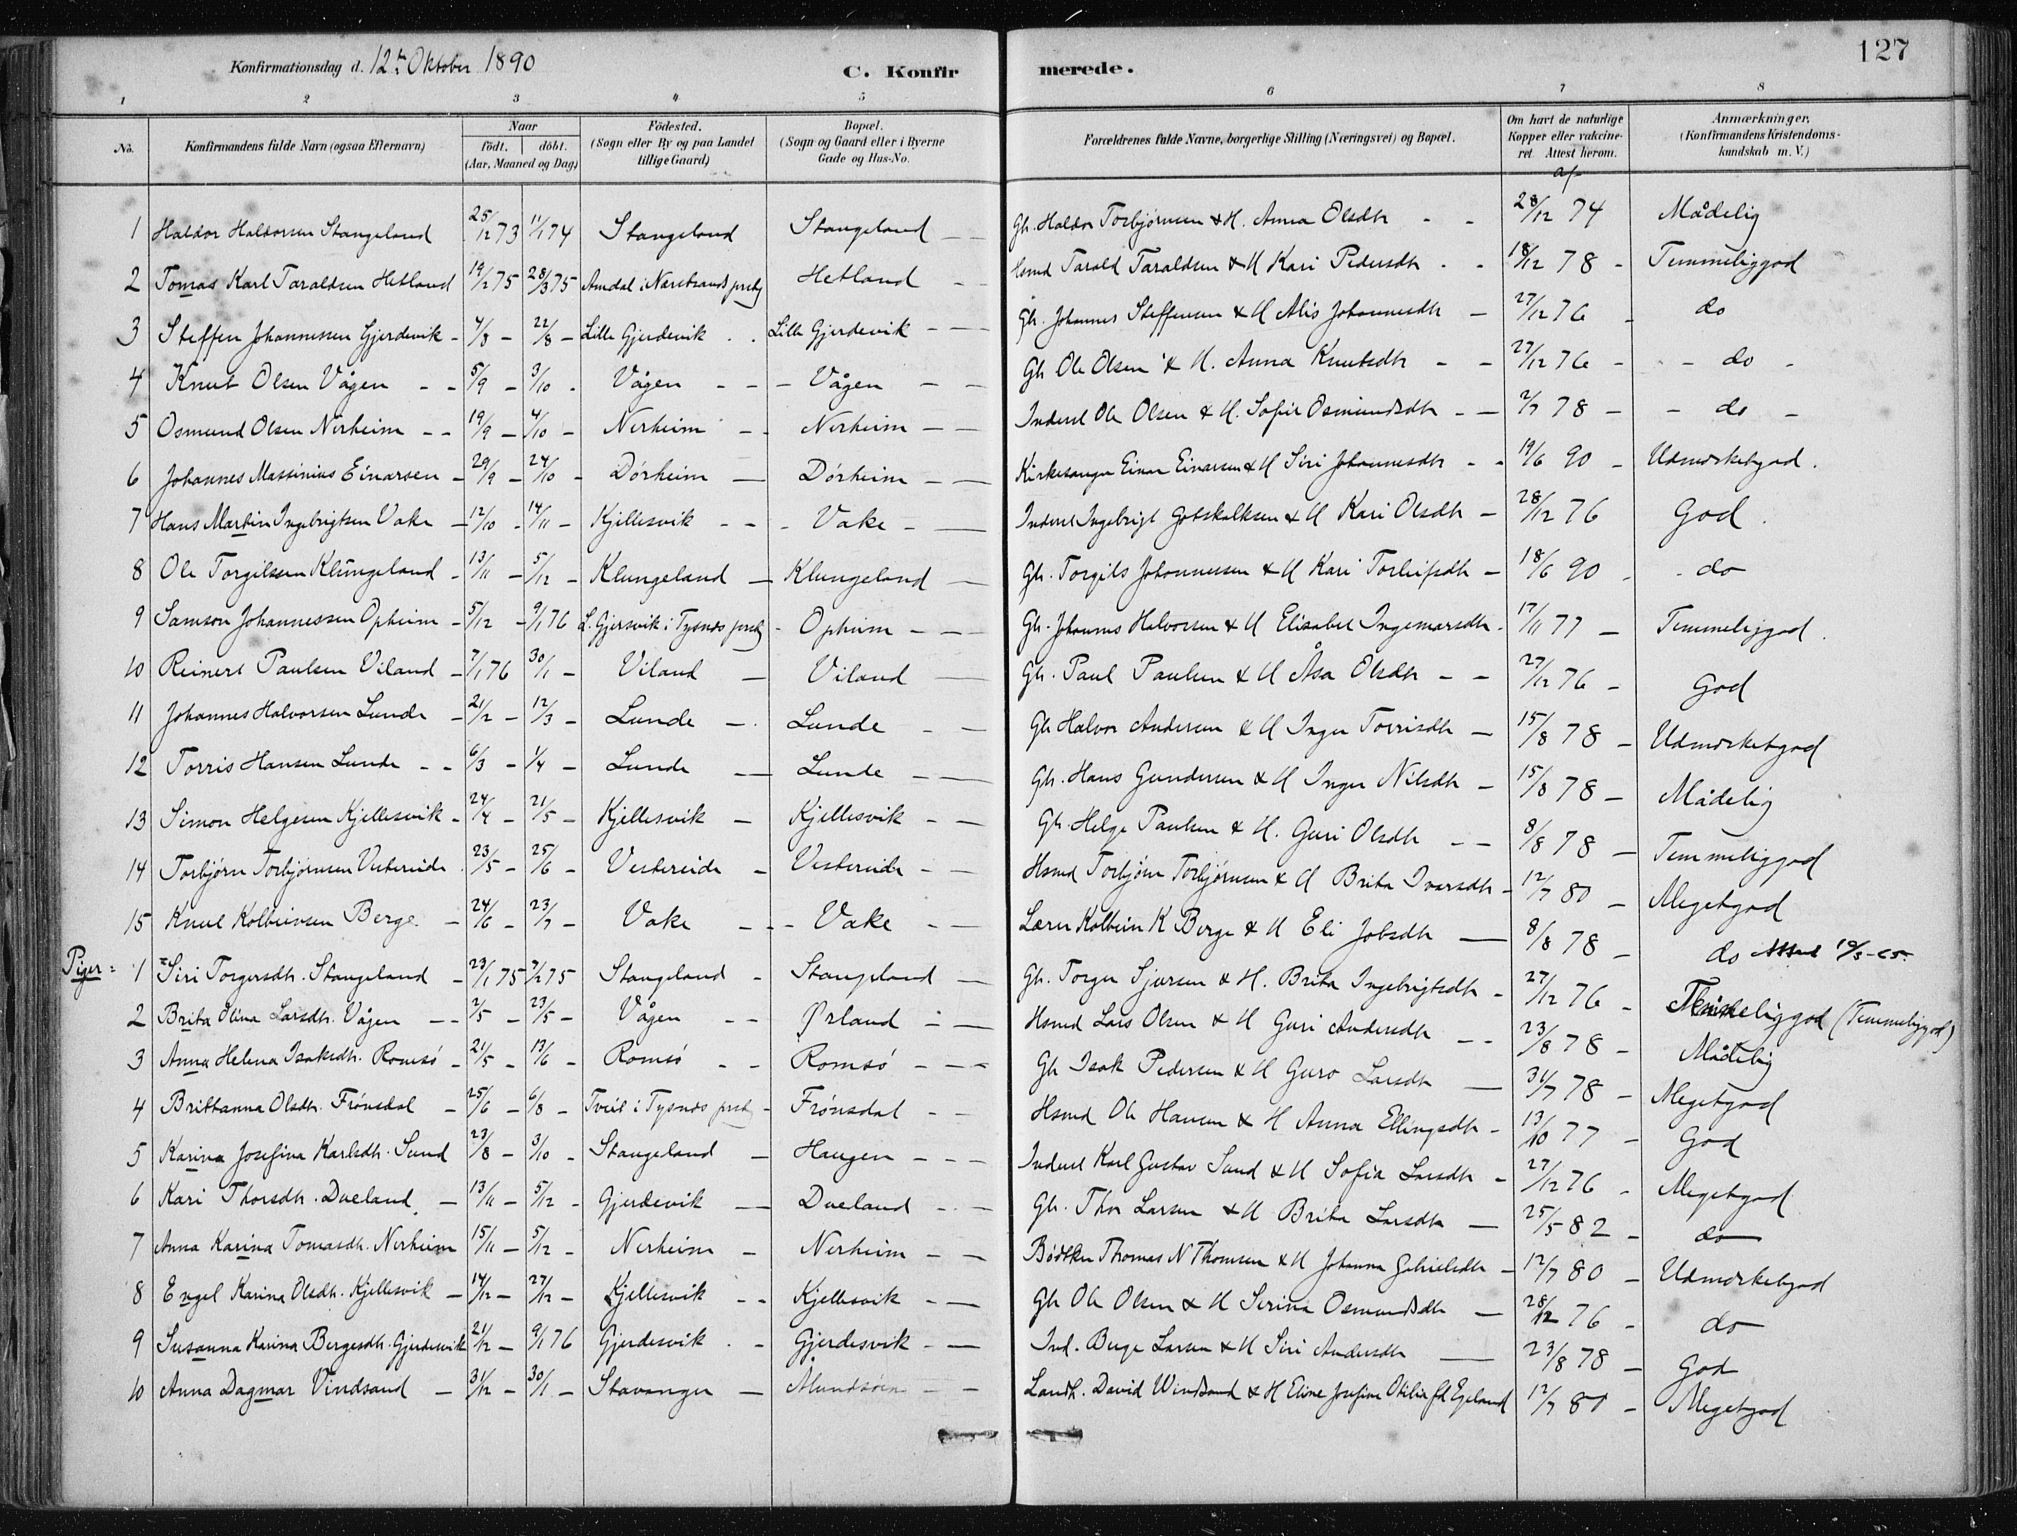 127
Konfirmationsdag d. 12te Oktober 1890
C. Konfirmerede.
1 2 3 4 5 6 7 8
No. Konfirmandens fulde Navn (ogsaa Efternavn) Naar født. døbt. (Aar, Maaned og Dag) Fødested. (Sogn eller By og paa Landet tillige Gaard) Bopæl. (Sogn og Gaard eller i Byerne Gade og Hus-No. Forældrenes fulde Navne, borgerlige Stilling (Næringsvei) og Bopæl. Om havt de naturlige Kopper eller vakcineret Attest herom. af Anmærkninger. (Konfirmandens Kristendomskundskab m. V.)
1 Haldor Haldorsen Stangeland 25/12 73 11/1 74 Stangeland Stangeland - - Gb. Haldor Torbjørnsen & H. Anna Olsdtr - - 28/12 74 Mådelig
2 Tomas Karl Taraldsen Hetland 19/2 75 28/3 75 Amdal i Nærstrands prstg Hetland - - Hsmd Tarald Taraldsen & H Kari Pedersdtr - - 18/12 78 - Temmeliggod
3 Steffen Johannessen Gjerdevik - 4/8 - 22/8 - Lille Gjerdevik - - Lille Gjerdevik - - Gb. Johannes Steffensen & H Alis Johannesdtr - 27/12 76 - do
4 Knut Olsen Vågen - - 5/9 - 3/10 - Vågen - - - Vågen - - Gb Ole Olsen & H. Anna Knutsdtr - - 27/12 76 - - do -
5 Osmund Olsen Nerheim - - 19/9 - 4/10 - Nerheim - - Nerheim - - Inderst Ole Olsen & H. Sofie Osmundsdtr - - 2/7 78 - - do -
6 Johannes Massinius Einarsen - 29/9 - 24/10 - Dørheim - Dørheim - - Kirkesanger Einar Einarsen & H Siri Johannesdtr - - 19/6 90 - Udmerketgod.
7 Hans Martin Ingebrigtsen Vake - 12/10 - 14/11 - Kjellesvik - - - Vake - - Inderst Ingebrigt Gotskalksen & H Kari Olsdtr - 28/12 76 God.
8 Ole Torgilssen Klungeland - 13/11 - 5/12 - Klungeland - Klungeland - Gb. Torgils Johannessen & H Kari Torleifsdtr - 18/6 90 - - do
9 Samson Johannessen Opheim - 5/12 - 9/1 76 L. Gjersvik i Tysnes prstg - Opheim - - Gb. Johannes Halvorsen & H Elisabet Ingemarsdtr - 17/11 77 - Temmeliggod.
10 Reinert Paulsen Viland - 7/1 76 30/1 - Viland - Viland - Gb. Paul Paulsen & H Åsa Olsdtr - - 27/12 76 - God
11 Johannes Halvorsen Lunde - 21/2 - 12/3 - Lunde - Lunde - - Gb Halvor Andersen & H Inger Torrisdtr - 15/8 78 - Udmerketgod
12 Torris Hansen Lunde - - 6/3 - 1/4 - Lunde - Lunde - - Gb. Hans Gundersen & H Inger Nilsdtr - 15/8 78 - Mådelig
13 Simon Helgesen Kjellesvik - 24/4 - 21/5 - Kjellesvik - Kjellesvik - - Gb. Helge Paulsen & H. Guri Olsdtr - - 8/8 78 - Temmeliggod
14 Torbjørn Torbjørnsen Vestereide 23/5 - 25/6 - Vestereide - Vestereide - - Hsmd Torbjørn Torbjørnsen & H Brita Ivarsdtr - 12/7 80 - Megetgod
15 Knut Kolbeinsen Berge. - 24/6 - 23/7 - Vake - - - Vake - - Lærer Kolbein K Berge & H Eli Jobsdtr - 8/8 78 - do 19/5-65.
Piger: 1 Siri Torgersdtr. Stangeland - 23/1 75 7/2 75 Stangeland - Stangeland - Gb. Torger Sjursen & H. Brita Ingebrigtsdtr - 27/12 76 - Temmeliggod (Temmeliggod)
2 Brita Olina Larsdtr. Vågen - - 2/5 - 23/5 - Vågen - - Ørland - - Hsmd Lars Olsen & H Guri Andersdtr - - 23/8 78 - Mådelig
3 Anna Helena Isaksdtr. Romsø - 21/5 - 13/6 - Romsø - - Romsø - - - Gb Isak Pedersen & H Guro Larsdtr - 31/7 78 - Megetgod
4 Brittanna Olsdtr. Frønsdal - 25/6 - 6/8 - Tveit i Tysnes prstg - Frønsdal - - Hsmd Ole Hansen & H Anna Ellingsdtr - 13/10 77 - God
5 Karina Josefina Karlsdtr. Sund 23/8 - 3/10 - Stangeland - Haugen - - - Inderst Karl Gustav Sund & H Sofia Larsdtr - 27/12 76 - Megetgod
6 Kari Thorsdtr. Dueland. - 13/11 - 5/12 - Gjerdevik - Dueland - - Gb. Thor Larsen & H Brita Larsdtr - 25/5 82 - do
7 Anna Karina Tomasdtr. Nerheim 15/11 - 5/12 - Nerheim - Nerheim - - Bødtker Thomas N Thomsen & H Johanna Gabrielsdtr - 12/7 80 - Udmerketgod
8 Engel Karina Olsdtr. Kjellesvik - 14/12 - 27/12 - Kjellesvik - - Kjellesvik - - Gb Ole Olsen & H Serina Osmundsdtr - 28/12 76 - do
9 Susanna Karina Bergesdtr. Gjerdesvik 21/12 - 9/1 76 Gjerdesvik - - Gjerdesvik - - Ind. Berge Larsen & H Siri Andersdtr - 23/8 78 - God
10 Anna Dagmar Vindsand - 31/12 - 30/1 - Stavanger - - - Landh. David Windsand & H Eline Josefine Otilie fd Egeland 12/7 81 - Megetgod